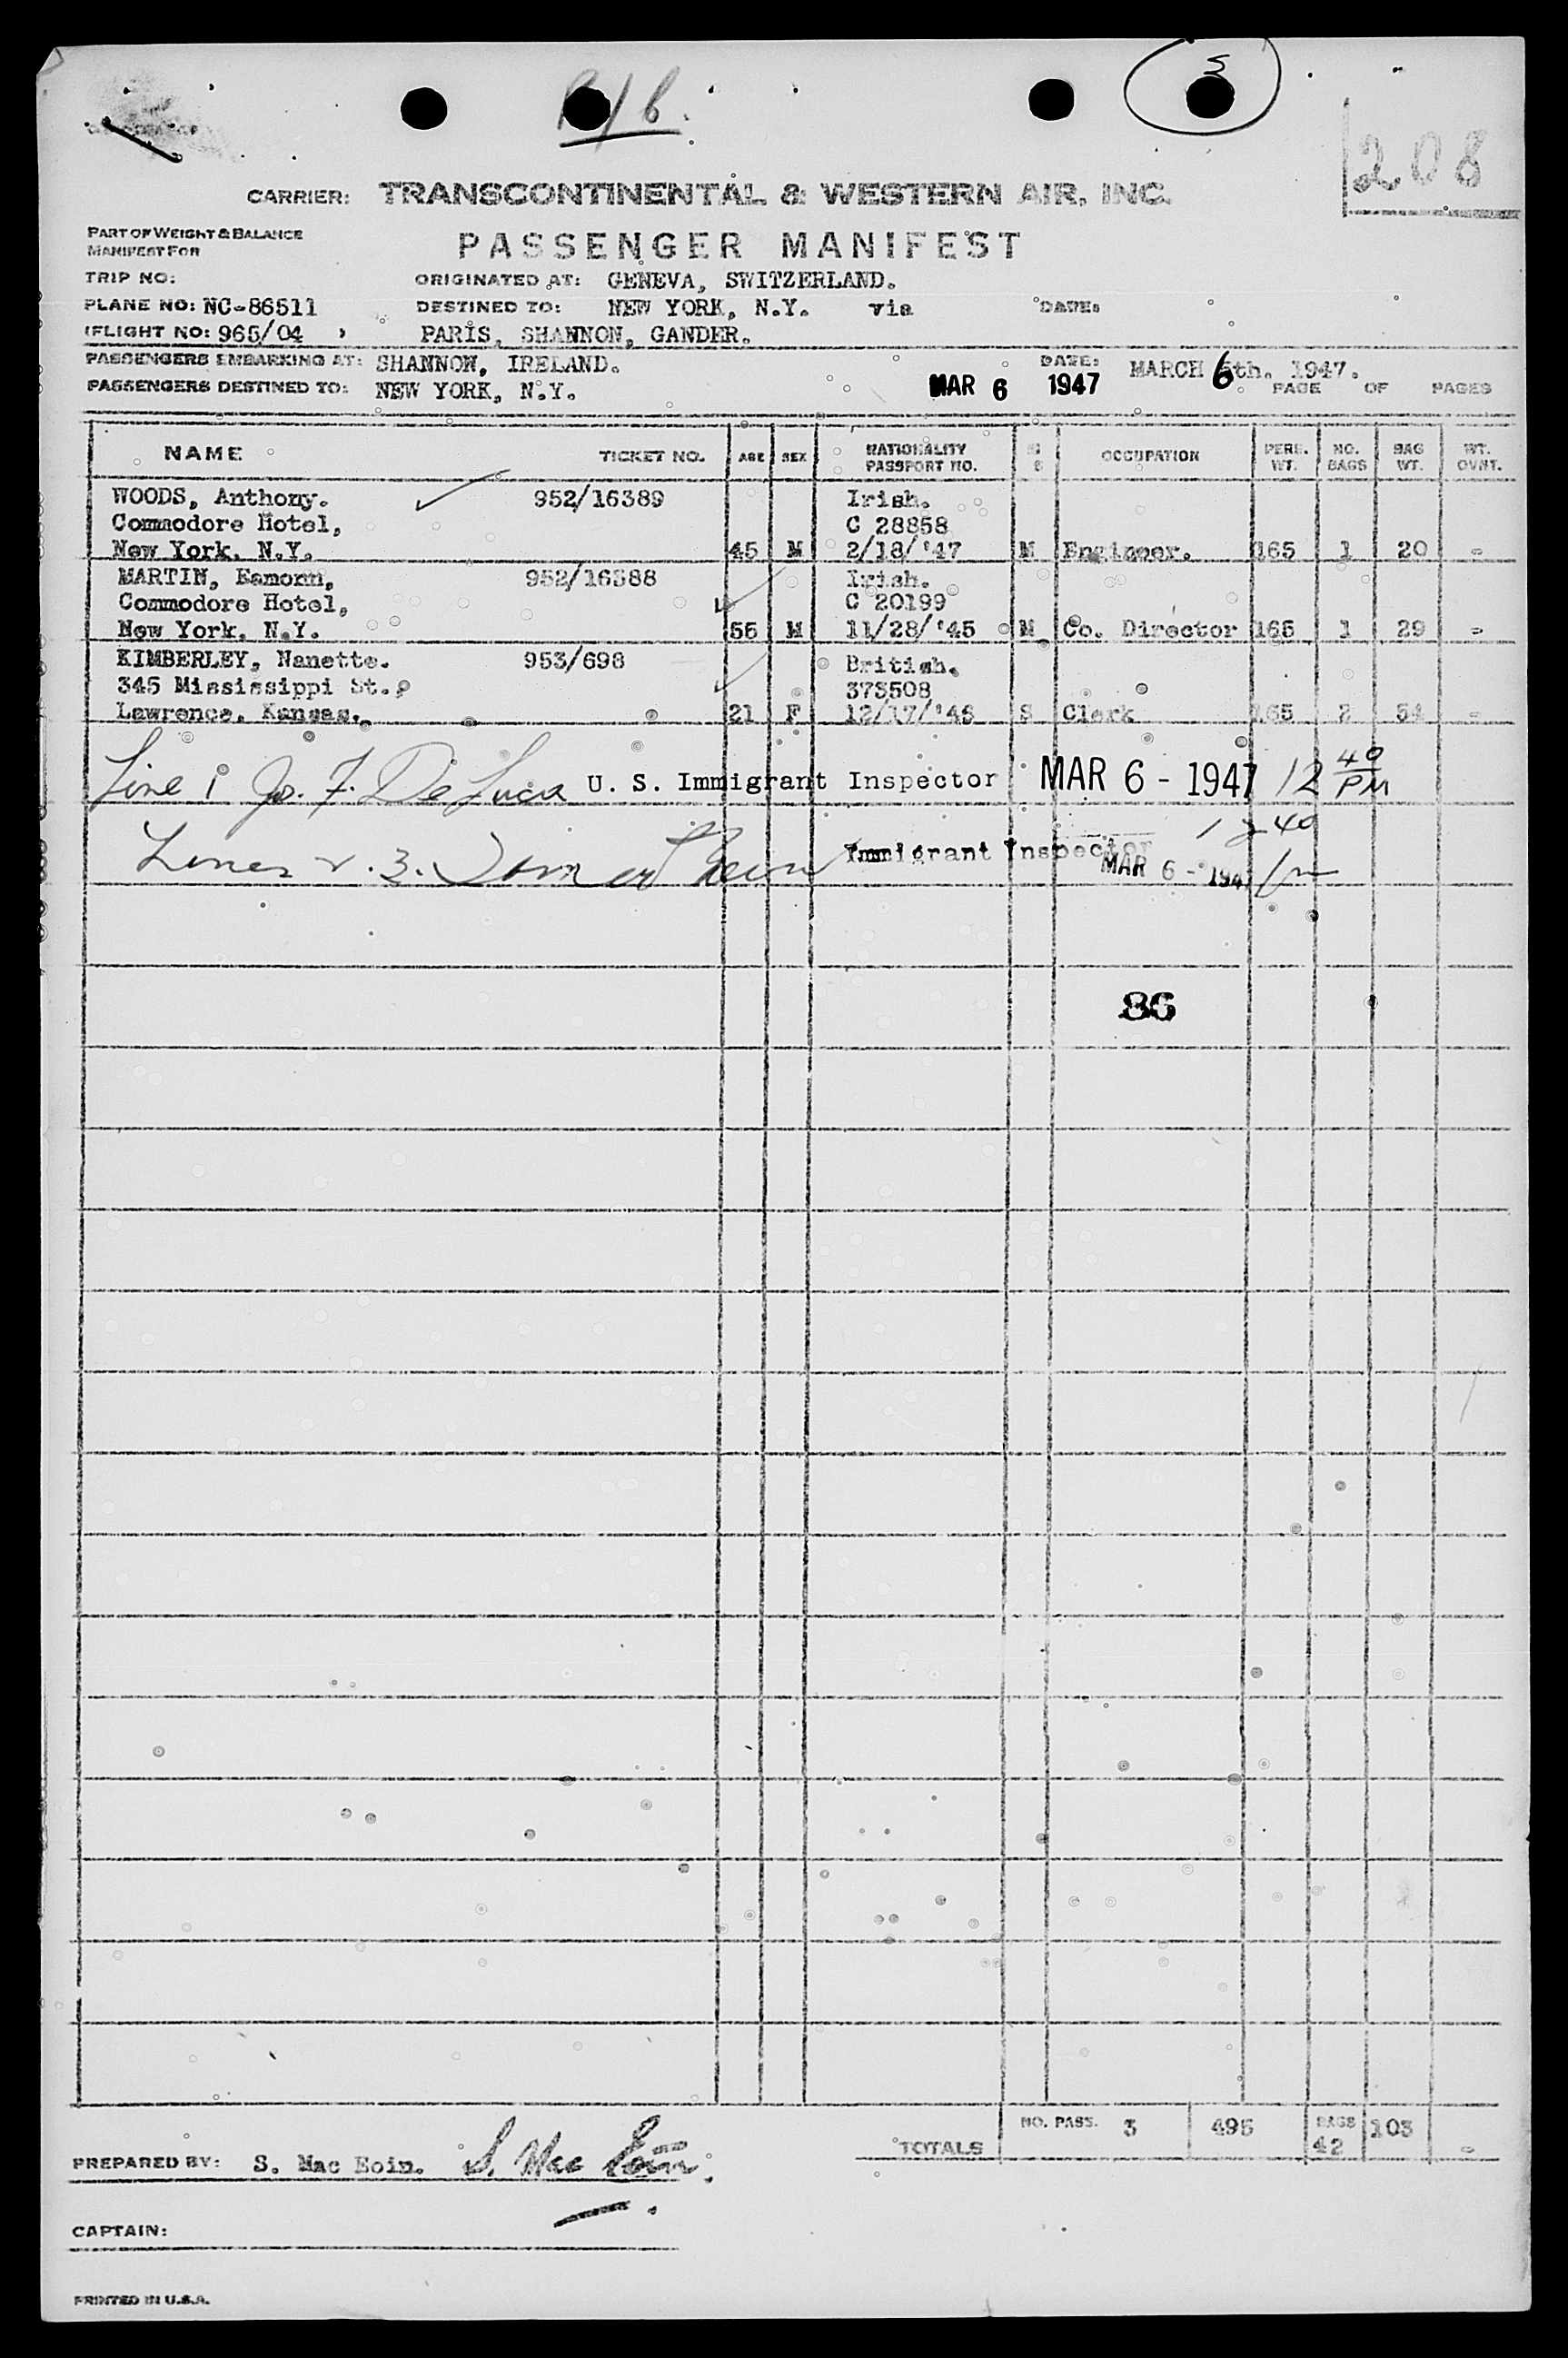 5
208
CARRIER: TRANSCONTINENTAL & WESTERN AIR, INC.
PART OF WEIGHT & BALANCE
MANIFEST FOR
PASSENGER MANIFEST
TRIP NO: ORIGINATED AT: GENEVA, SWITZERLAND.
PLANE NO: NC-86511 DESTINED TO: NEW YORK, N.Y. via DATE:
FLIGHT NO: 965/04 PARIS, SHANNON, GANDER.
PASSENGERS EMBARKING AT: SHANNON, IRELAND. DATE: MARCH 6th. 1947.
PASSENGERS DESTINED TO: NEW YORK, N.Y. MAR 6 1947 PAGE OF PAGES
NAME TICKET NO. AGE SEX NATIONALITY PASSPORT NO. M S OCCUPATION PERS. WT. NO. BAGS BAG WT. WT. OVNT.
WOODS, Anthony. 952/16389 Irish.
Commodore Hotel, C 28858
New York. N.Y. 45 M 2/18/'47 M Engineer. 165 1 20 -
MARTIN, Eamonn, 952/16388 Irish.
Commodore Hotel, C 20199
New York. N.Y. 56 M 11/28/'45 M Co. Director 165 1 29 -
KIMBERLEY, Nanette. 953/698 British.
345 Mississippi St., 373508
Lawrence, Kansas. 21 F 12/17/'46 S Clerk 165 2 54 -
Line 1 Jo. F. De Luca U. S. Immigrant Inspector MAR 6 - 1947 12 40 PM
Lines 2. 3. Immigrant Inspector 12 40
MAR 6 - 1947
86
TOTALS NO. PASS. 3 495 BAGS 42 103 -
PREPARED BY: S. Mac Eoin. S. Mac Eoin.
CAPTAIN:
PRINTED IN U.S.A.